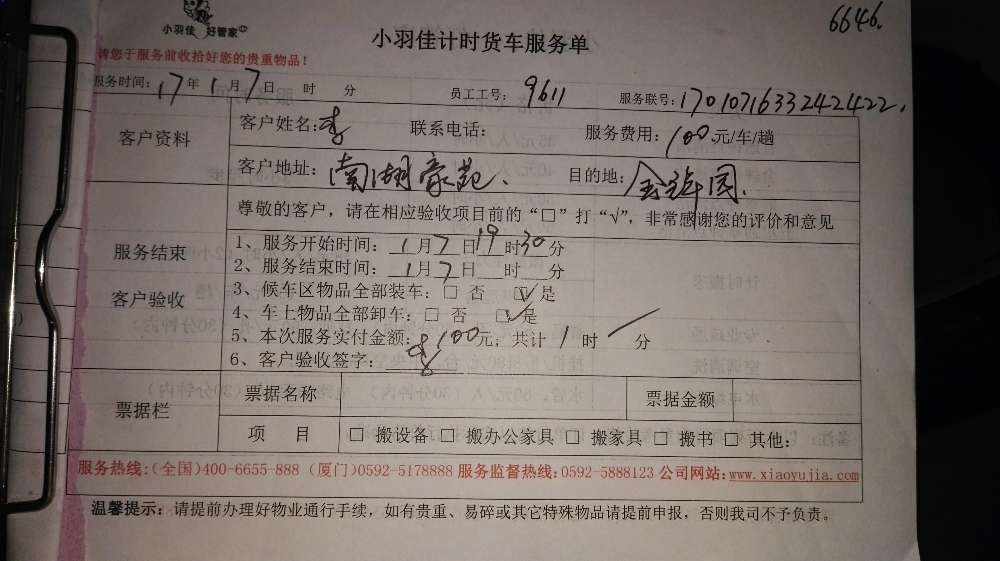 6646.
小羽佳 好管家
小羽佳计时货车服务单
请您于服务前收拾好您的贵重物品！
服务时间：17年1月7日 时 分 员工工号：9611 服务联号：170107163324242422.
客户资料
客户姓名：李 联系电话： 服务费用：100元/车/趟
客户地址：南湖豪苑. 目的地：金祥园.
服务结束
客户验收
尊敬的客户，请在相应验收项目前的“□”打“√”，非常感谢您的评价和意见
1、服务开始时间：1月7日19时30分
2、服务结束时间：1月7日 时 分
3、候车区物品全部装车：□ 否 ☑ 是
4、车上物品全部卸车：□ 否 ☑ 是
5、本次服务实付金额：100元；共计1时 分
6、客户验收签字：李
票据栏
票据名称 票据金额
项 目 □ 搬设备 □ 搬办公家具 □ 搬家具 □ 搬书 □ 其他：
服务热线:(全国)400-6655-888 (厦门)0592-5178888 服务监督热线:0592-5888123 公司网站:www.xiaoyujia.com
温馨提示：请提前办理好物业通行手续，如有贵重、易碎或其它特殊物品请提前申报，否则我司不予负责。